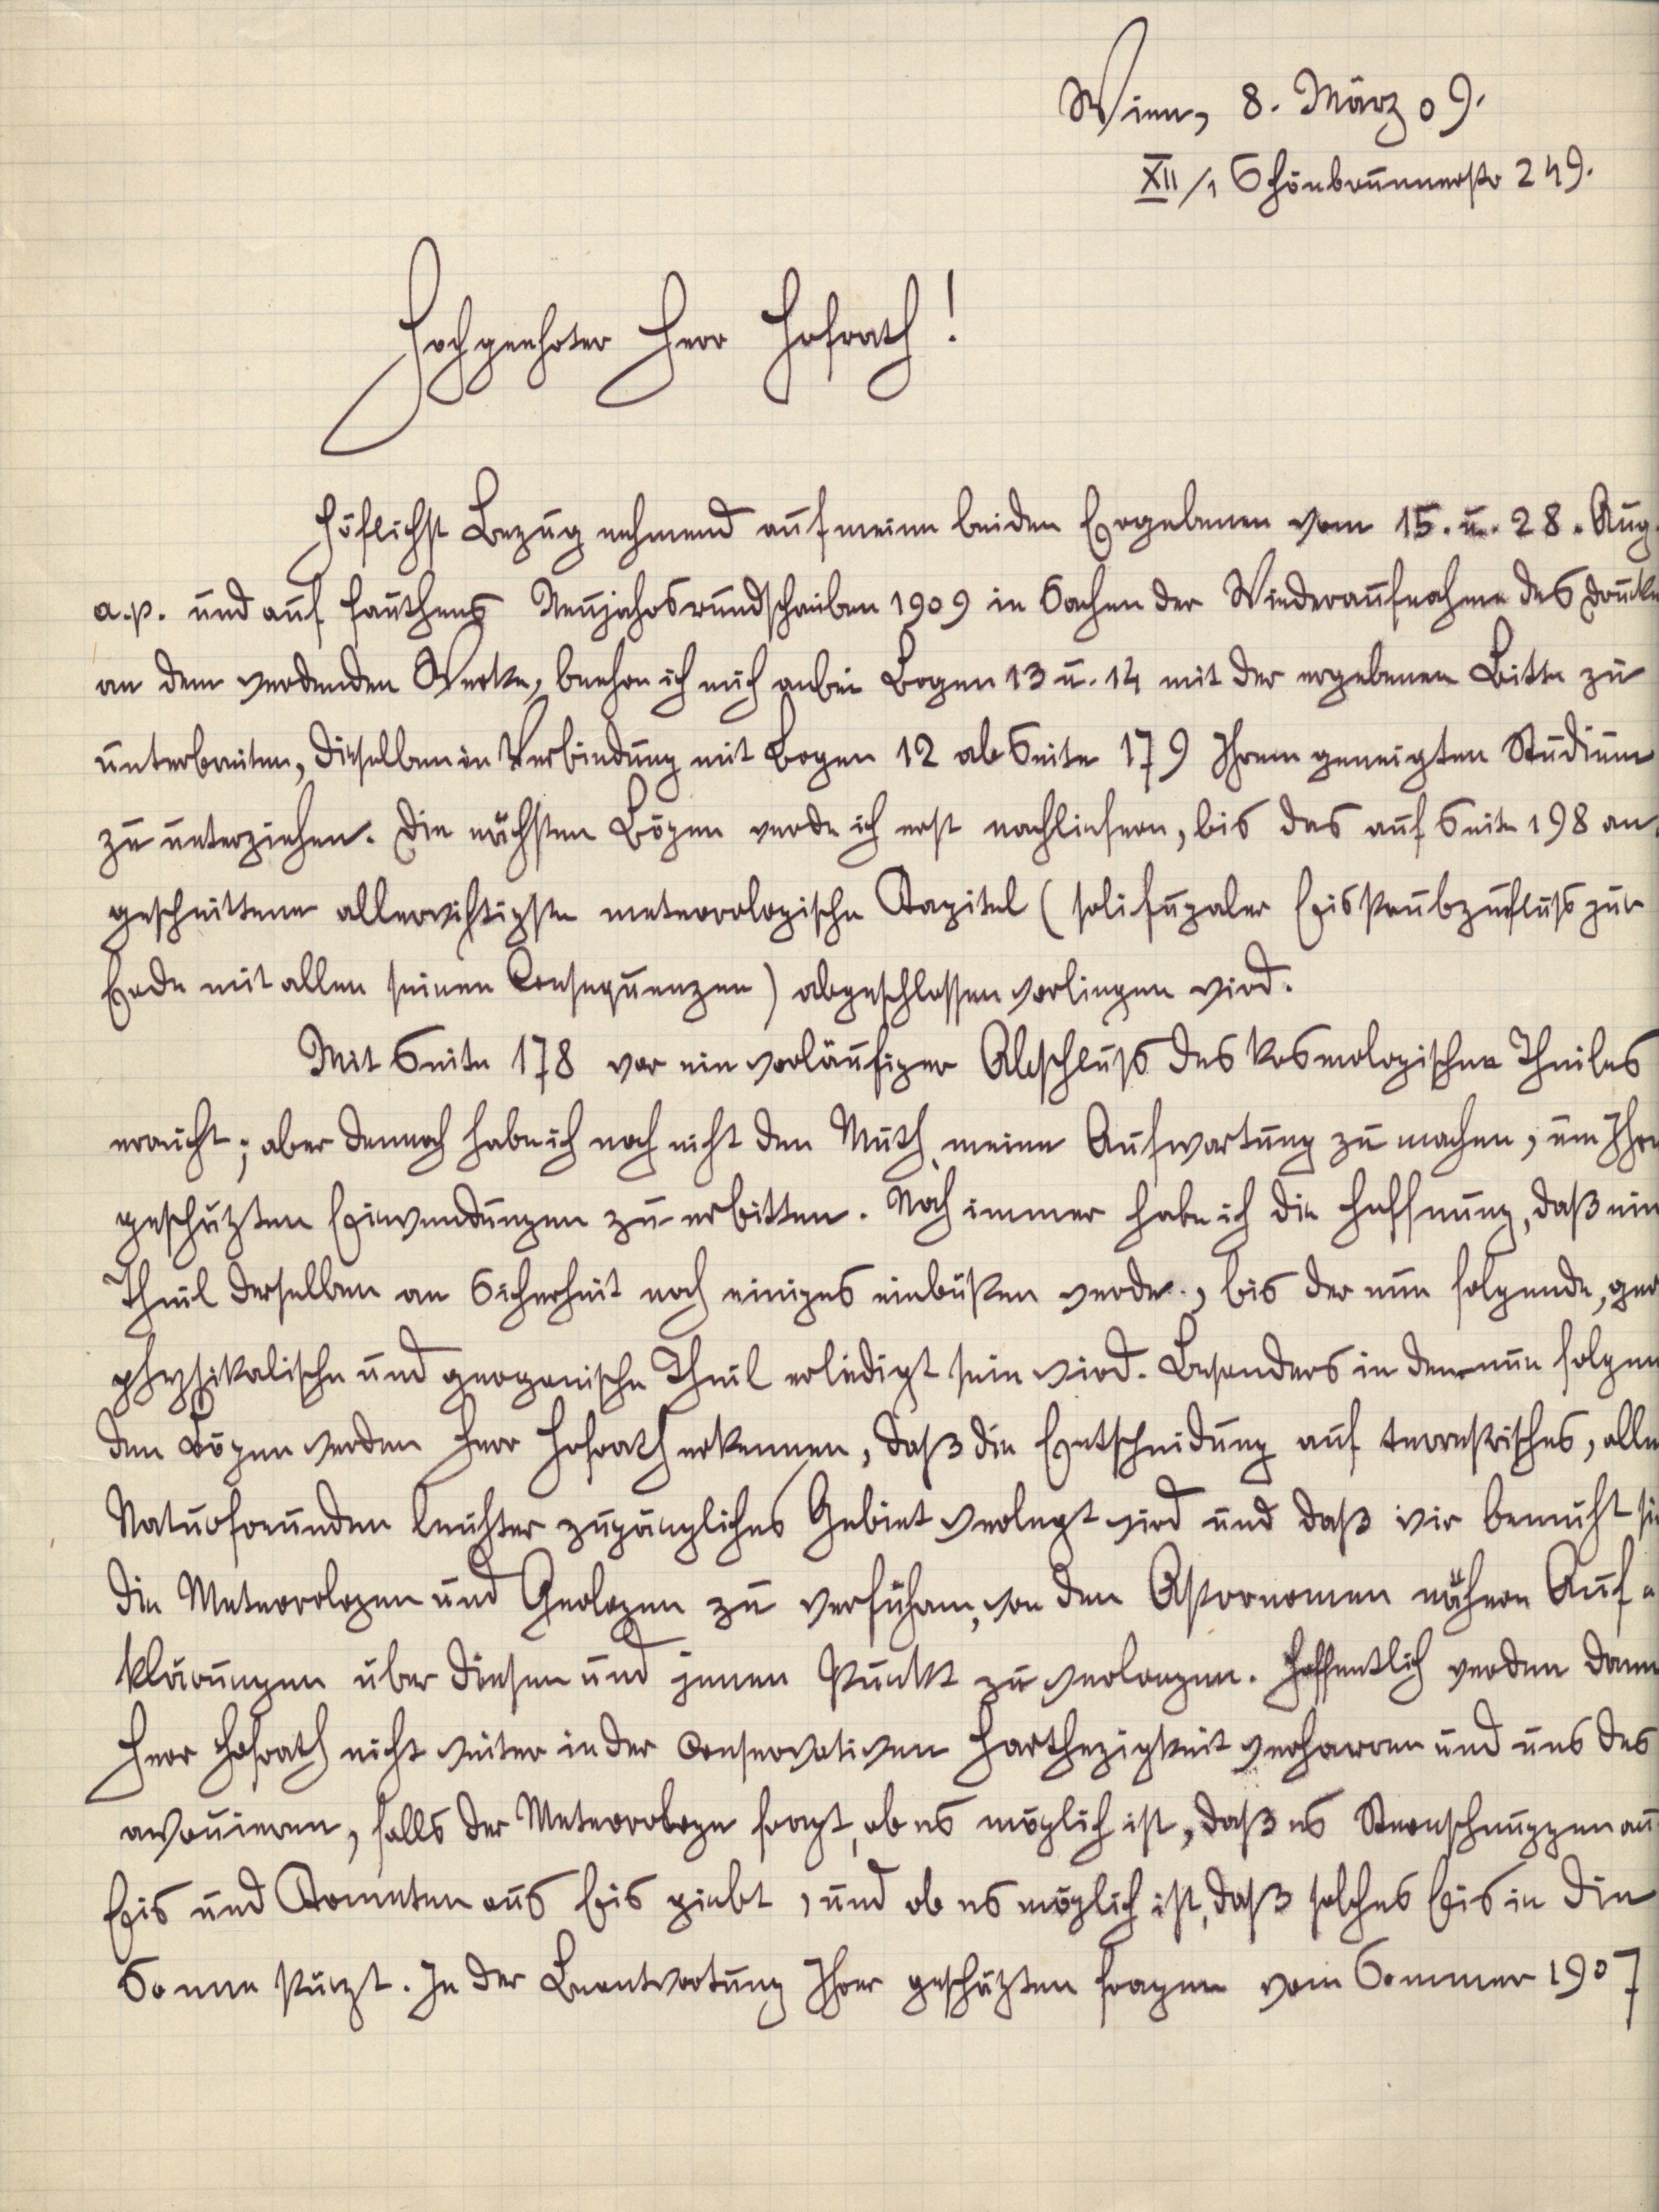 Wien, 8. März 09.
XII/1 Schönbrunnerstr 249.
Hochgeehrter Herr Hofrath!
Höflichst Bezug nehmend auf meine beiden Ergebenen vom 15. u. 28. Aug.
a.p. und auf Fauthens Neujahrsrundschreiben 1909 in Sachen der Wiederaufnahme des Drucke
an dem werdenden Werke, beehre ich mich anbei Bogen 13 u. 14 mit der ergebenen Bitte zu
unterbreiten, dieselben in Verbindung mit Bogen 12 ab Seite 179 Ihrem geneigten Studium
zu unterziehen. Die nächsten Bögen werde ich erst nachliefern, bis das auf Seite 198 an-
geschnittene allerwichtigste meteorologische Kapitel (solifugaler Eisstaubzufluss zur
Erde mit allen seinen Consequenzen) abgeschlossen vorliegen wird.
Mit Seite 178 war ein vorläufiger Abschluss des kosmologischen Theiles
erreicht; aber dennoch habe ich noch nicht den Muth, meine Aufwartung zu machen, um Ihre
geschätzten Einwendungen zu erbitten. Noch immer habe ich die Hoffnung, daß ein
Theil derselben an Sicherheit noch einiges einbüßen werde, bis der nun folgende, geo
physikalische und geogonische Theil erledigt sein wird. Besonders in den nun folgen
den Bögen werden Herr Hofrath erkennen, daß die Entscheidung auf terrestrisches, alle
Naturfreunden leichter zugängliches Gebiet verlegt wird und daß wir bemüht si
die Meteorologen und Geologen zu verführen, von den Astronomen nähere Auf-
klärungen über diesen und jenen Punkt zu verlangen. Hoffentlich werden dann
Herr Hofrath nicht weiter in der conservativen Hartherzigkeit verharren und uns des
avouieren, falls der Meteorologe fragt, ob es möglich ist, daß es Sternschnuppen au
Eis und Kometen aus Eis giebt, und ob es möglich ist, daß solches Eis in die
Sonne stürzt. In der Beantwortung Ihrer geschätzten Fragen vom Sommer 1907